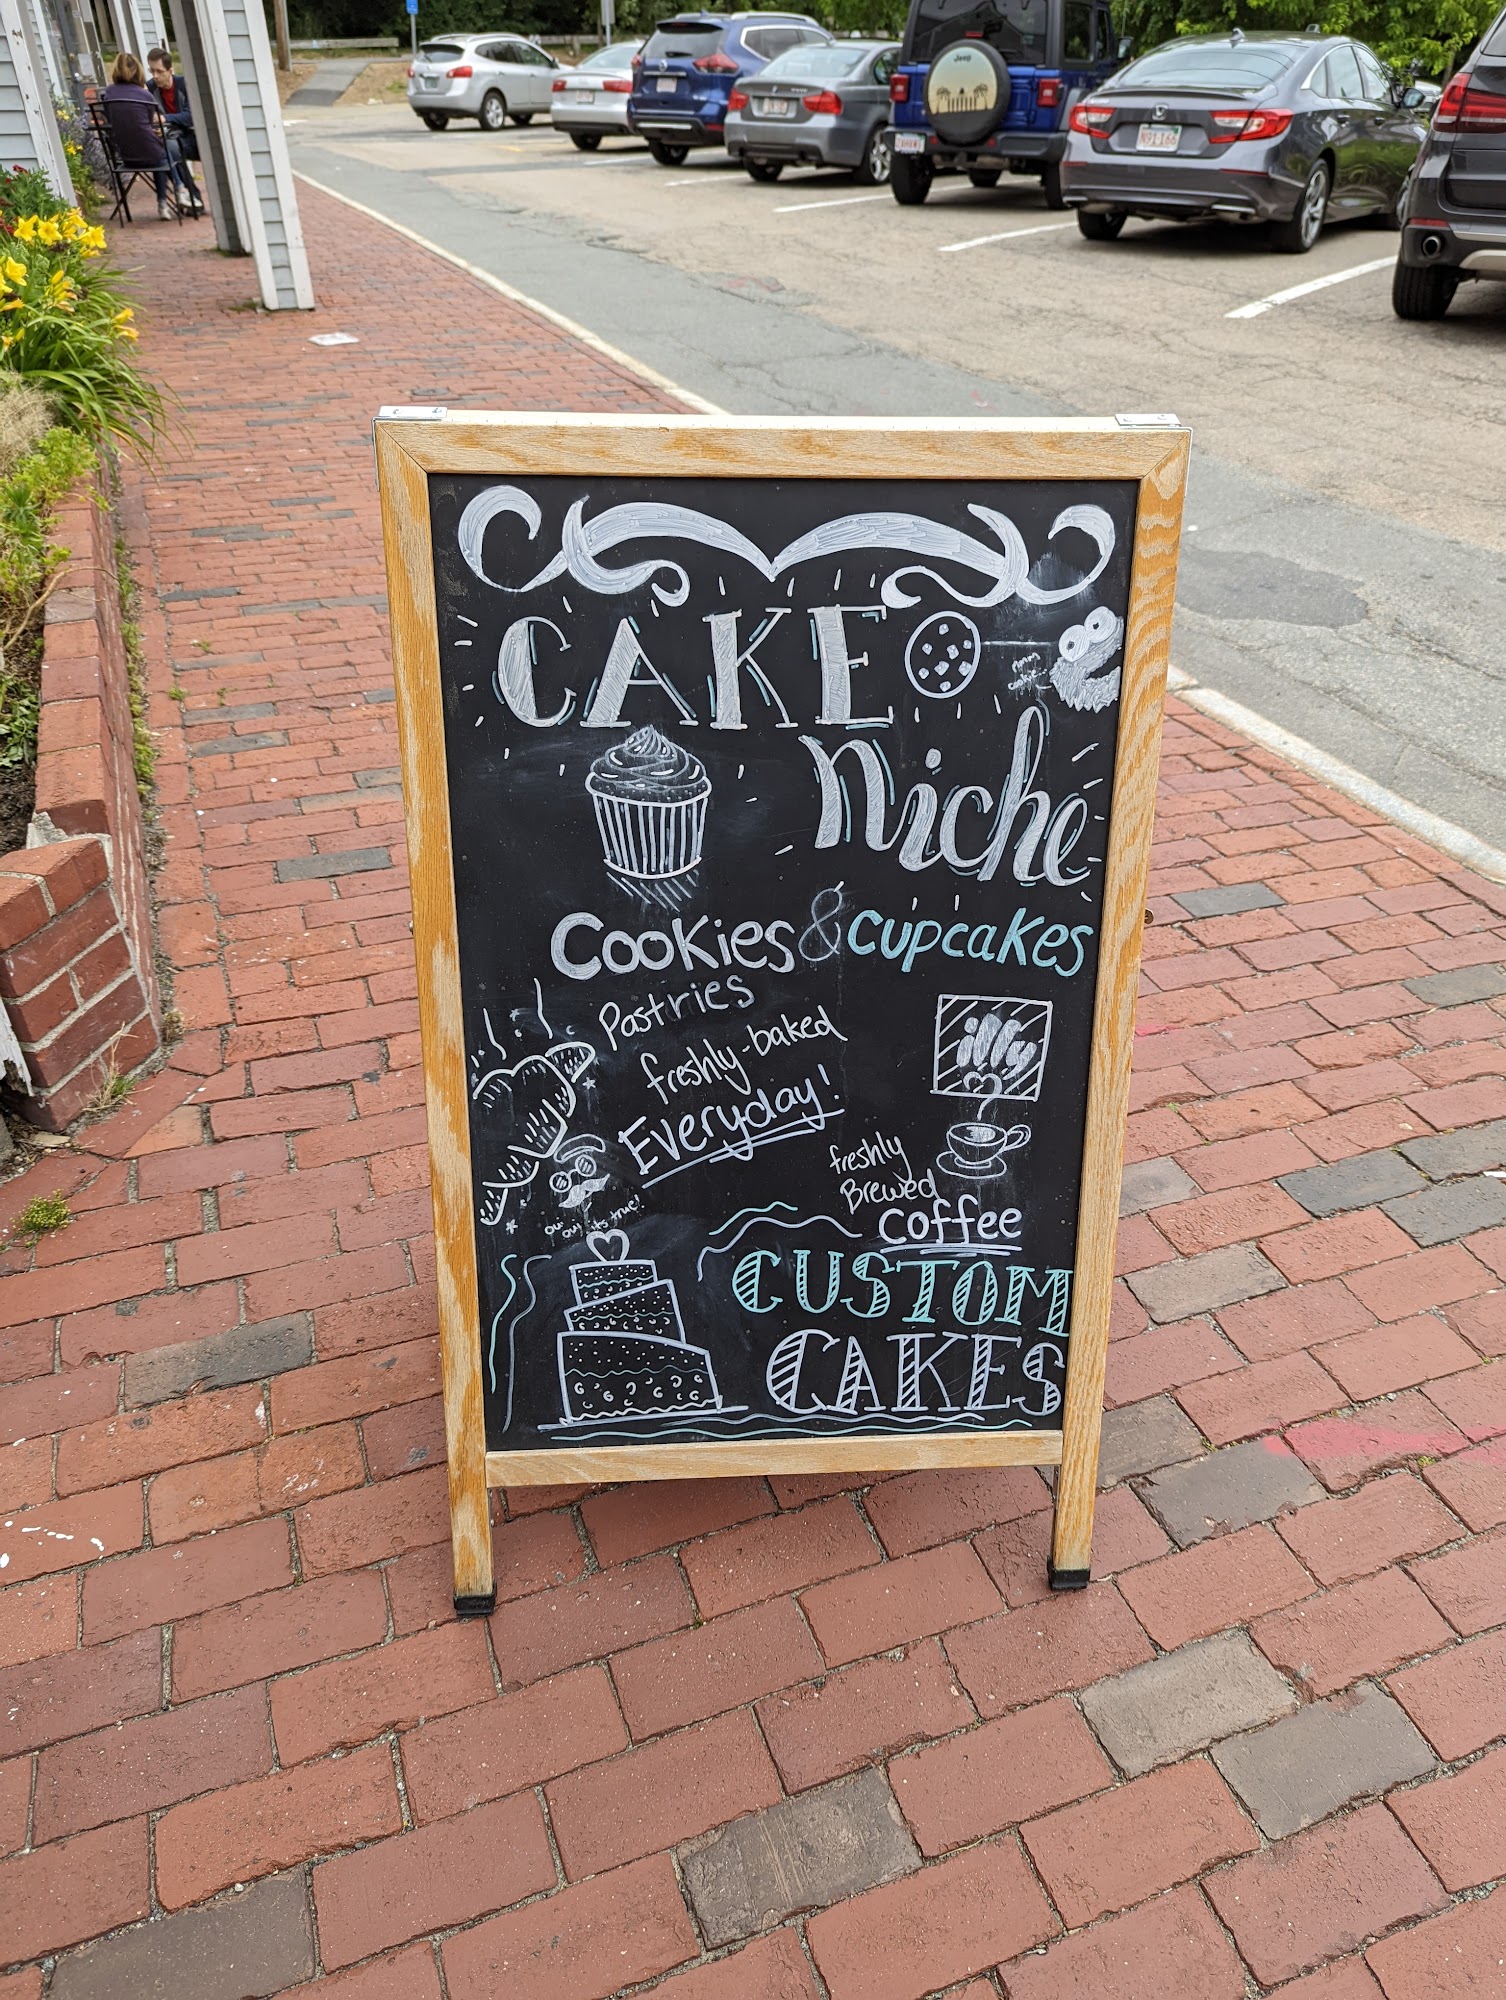 CAKE
mmm
cookie
niche
Cookies & cupcakes
Pastries
freshly-baked
Everyday!
illy
freshly
Brewed
coffee
oui
oui its true!
CUSTOM
CAKES
Jeep